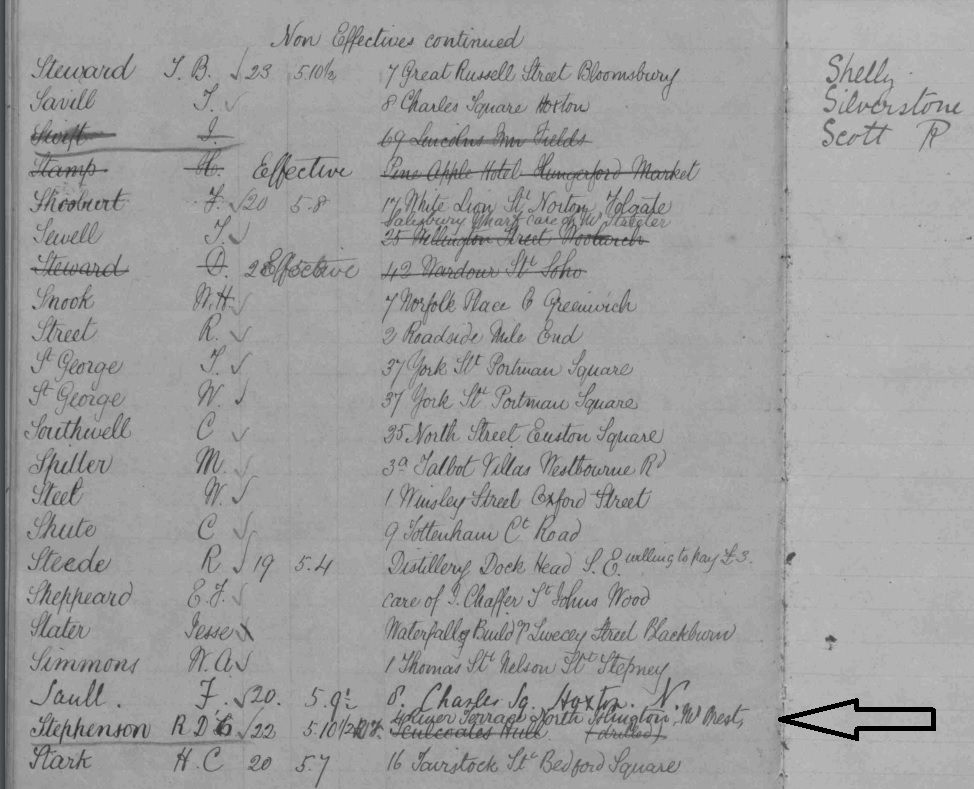 Non Effectives continued
Steward T. B. ✓ 23 5.10½ 7 Great Russell Street Bloomsbury
Savill T. ✓ 8 Charles Square Hoxton
Swift J. 69 Lincolns Inn Fields
Stamp H. Effective Pine Apple Hotel Hungerford Market
Shoobert F. ✓ 20 5.8 17 White Lion St Norton Folgate
Salisbury Wharf care of Mr
Sewell T. ✓ 25 Wellington Street Woolwich
Steward O. Effective 42 Wardour St Soho
Snook W. H. ✓ 7 Norfolk Place E Greenwich
Street R. ✓ 2 Roadside Mile End
St George T. ✓ 37 York St Portman Square
St George W. ✓ 37 York St Portman Square
Southwell C ✓ 35 North Street Euston Square
Spiller M. ✓ 3a Talbot Villas Westbourne Rd
Steel W. ✓ 1 Winsley Street Oxford Street
Shute C ✓ 9 Tottenham Ct Road
Steede R ✓ 19 5.4 Distillery Dock Head S. E. willing to pay £3.
Sheppeard E. J. ✓ care of J. Chaffer St Johns Wood
Slater Jesse Street Blackburn
Simmons W. A. ✓ 1 Thomas St Nelson St Stepney
Saull. F. ✓ 20. 5.9½ 8. Charles Sq. Hoxton. N.
Terrace North Islington, Mr Prest,
Stephenson R D G ✓ 22 5.10½ Sculcoates Hull (drilled)
Stark H. C 20 5.7 16 Tavistock St Bedford Square
Shelly
Silverstone
Scott R